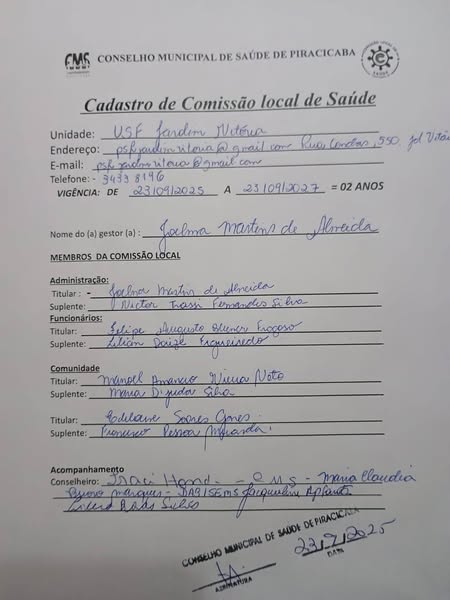 CMS CONSELHO MUNICIPAL DE SAÚDE DE PIRACICABA
Cadastro de Comissão local de Saúde
Unidade: USF Jardim Vitória
Endereço: psfjardimvitoria@gmail.com Rua 550, Jd Vitória
E-mail: psfjardimvitoria@gmail.com
Telefone: - 3433 8196
VIGÊNCIA: DE 23/09/2025 A 23/09/2027 = 02 ANOS
Nome do (a) gestor (a) : Joelma Martins de Almeida
MEMBROS DA COMISSÃO LOCAL
Administração:
Titular : - Joelma Martins de Almeida
Suplente: Victor Fernandes Silva
Funcionários:
Titular: Felipe Augusto Fragoso
Suplente: Lilian Figueiredo
Comunidade
Titular: Manoel Neto
Suplente: Maria Silva
Titular: Edilaine Soares
Suplente: Francisco Pessoa Miranda
Acompanhamento
Conselheiro: - CMS - Maria Claudia
Marques - DAB/SEMS Jacqueline
CONSELHO MUNICIPAL DE SAÚDE DE PIRACICABA
23/9/2025
ASSINATURA DATA